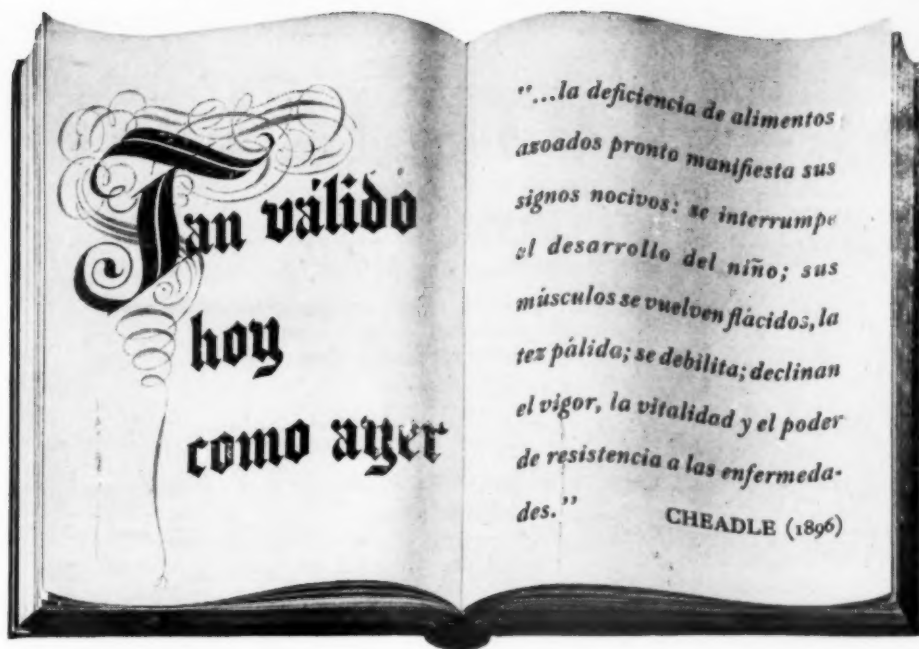 Tan válido
hoy
como ayer
"...la deficiencia de alimentos
azoados pronto manifiesta sus
signos nocivos: se interrumpe
el desarrollo del niño; sus
músculos se vuelven flácidos, la
tez pálida; se debilita; declinan
el vigor, la vitalidad y el poder
de resistencia a las enfermeda-
des."   CHEADLE (1896)